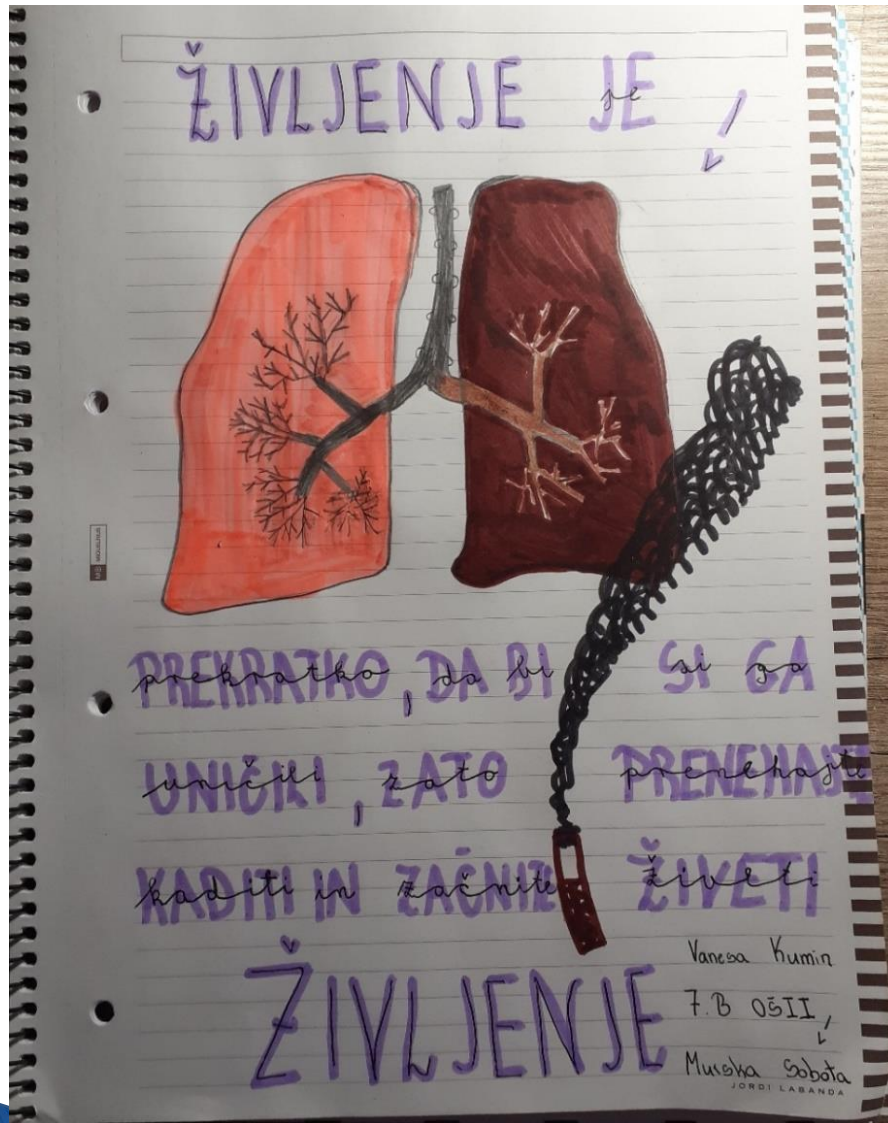 ŽIVLJENJE JE
PREKRATKO, DA BI SI GA
UNIČILI, ZATO PRENEHAJTE
KADITI IN ZAČNITE ŽIVETI
ŽIVLJENJE
Vanesa Kumin
7.B OŠII,
Murska Sobota
JORDI LABANDA